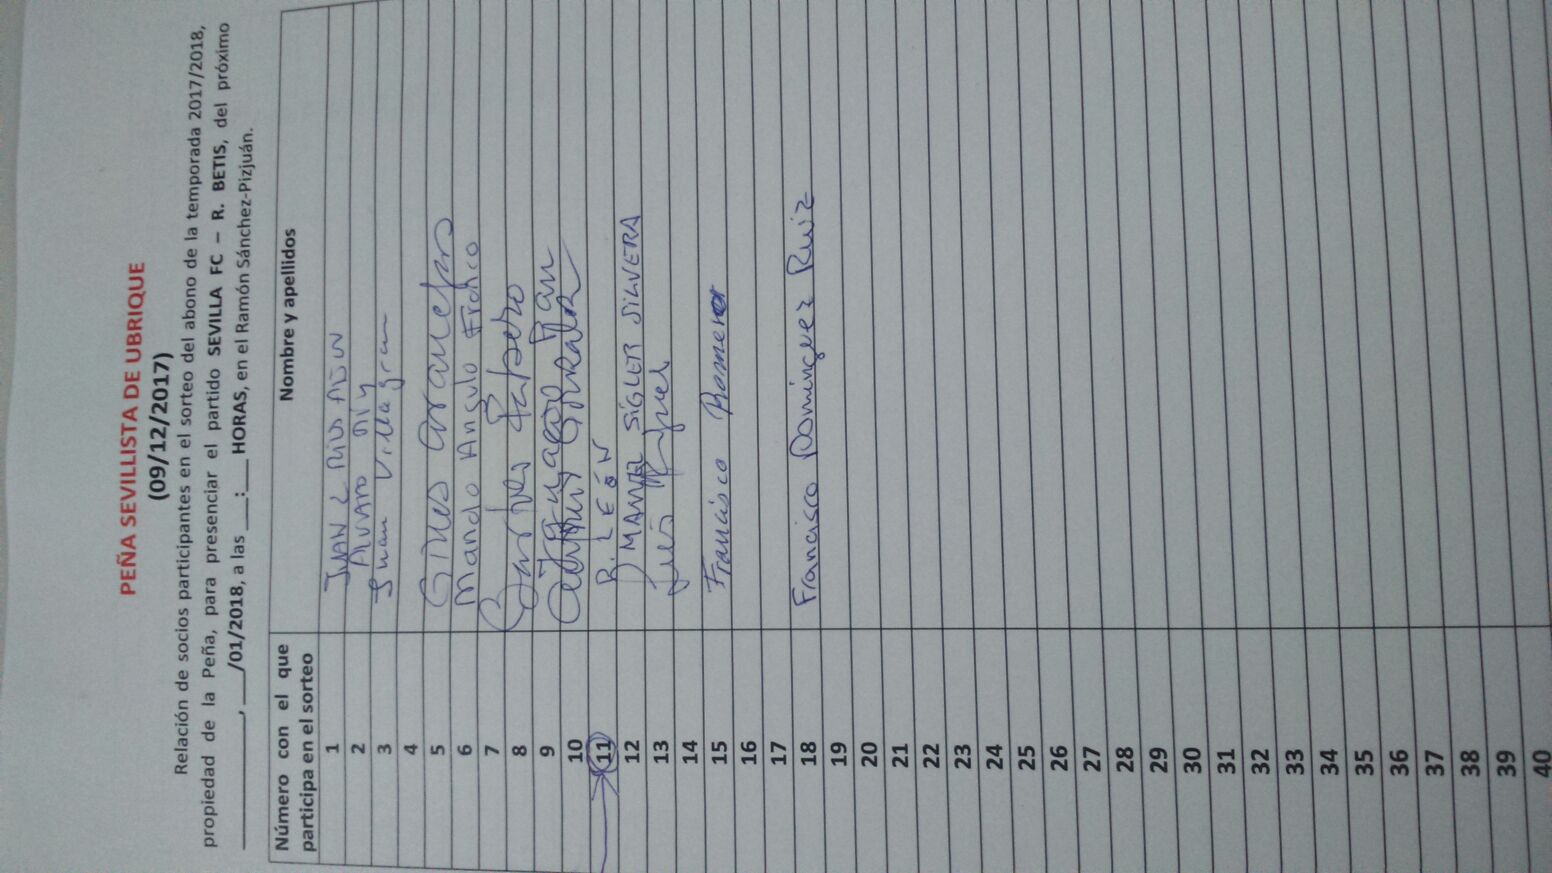 PEÑA SEVILLISTA DE UBRIQUE
(09/12/2017)
Relación de socios participantes en el sorteo del abono de la temporada 2017/2018,
propiedad de la Peña, para presenciar el partido SEVILLA FC – R. BETIS, del próximo
____________, ___/01/2018, a las ___:___ HORAS, en el Ramón Sánchez-Pizjuán.
Número con el que participa en el sorteo
Nombre y apellidos
1 JUAN L
2 ALVARO
3 Juan Villagran
4
5
6 Mando Angulo
7
8
9
10
11 R. LEÓN
12 MANUEL SIGLER SILVERA
13 Luis
14
15 Francisco Romero
16
17
18 Francisco Domínguez Ruiz
19
20
21
22
23
24
25
26
27
28
29
30
31
32
33
34
35
36
37
38
39
40